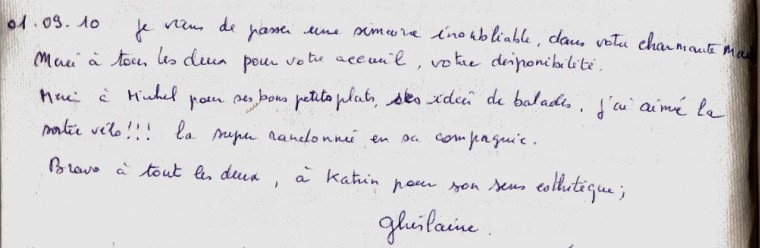 01.09.10 Je viens de passer une semaine inoubliable, dans votre charmante
Merci à tous les deux pour votre accueil, votre disponibilité.
Merci à Michel pour ses bons petits plats, ses idées de balades. J'ai aimé la
sortie vélo!!! la super randonnée en sa compagnie.
Bravo à tout les deux, à Katrin pour son sens esthétique;
Ghislaine.